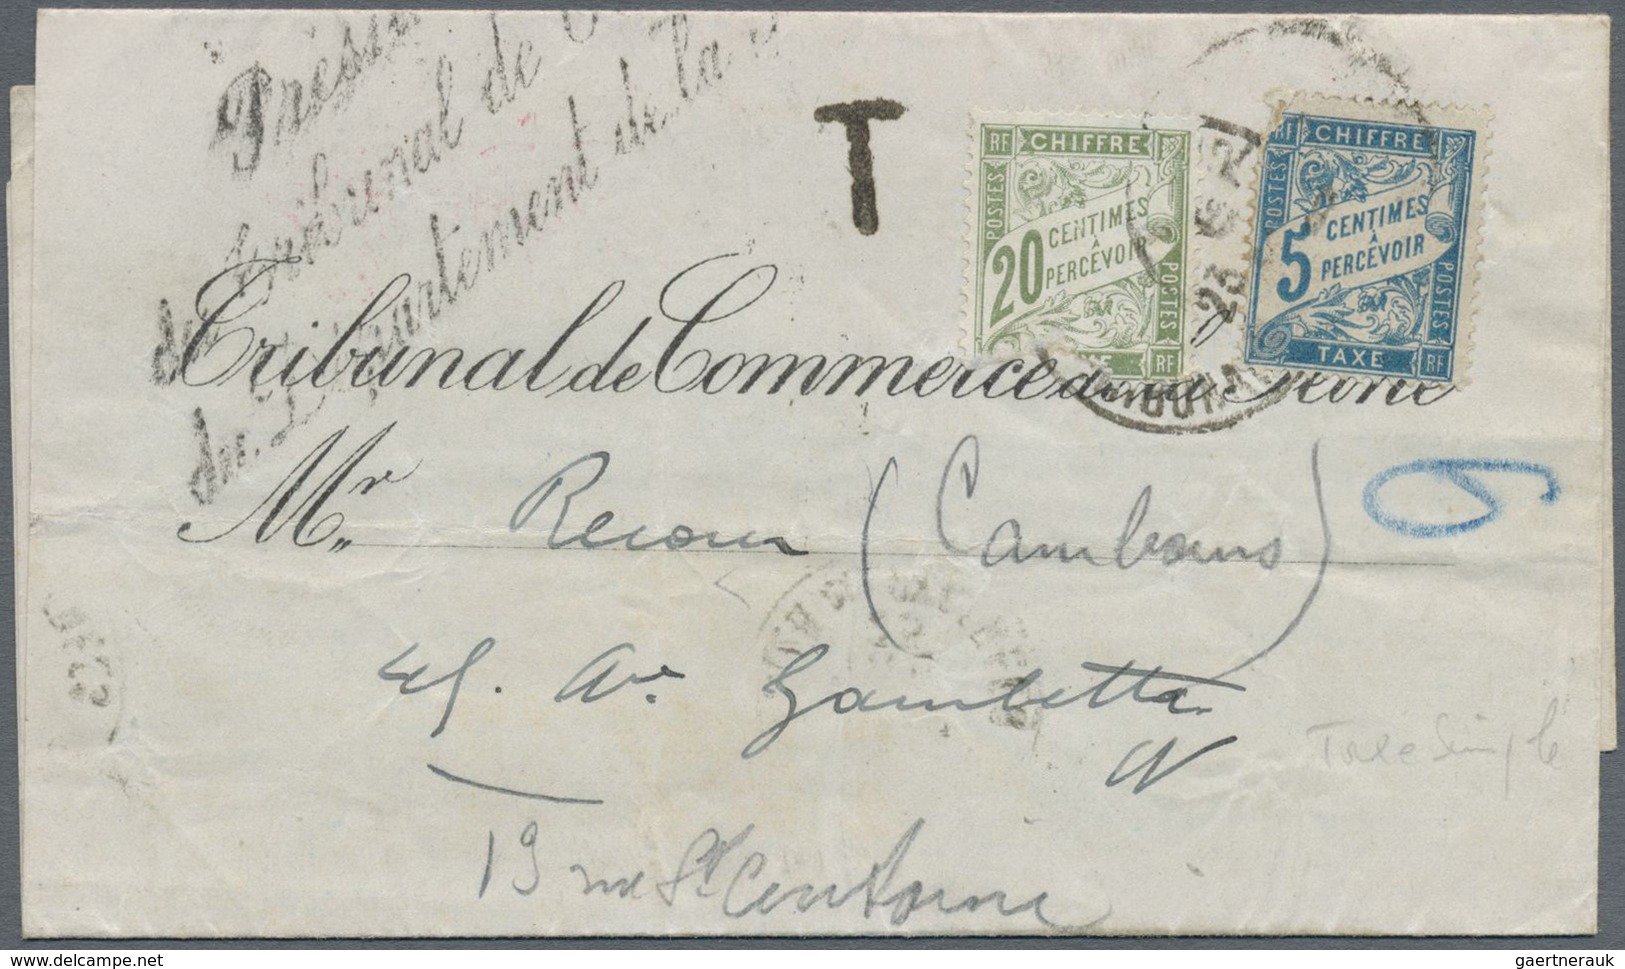 Présid
du Tribunal de C
du Département de la S
T
RF CHIFFRE
POSTES
20 CENTIMES
À
PERCEVOIR
POSTES
RF
RF CHIFFRE
POSTES
5 CENTIMES
À
PERCEVOIR
POSTES
TAXE RF
23
Tribunal de Commerce de la Seine
Mr (Cambours)
6
45. Av. Gambetta
Taxe Simple
19 rue St
delcampe.net
gaertnerauk